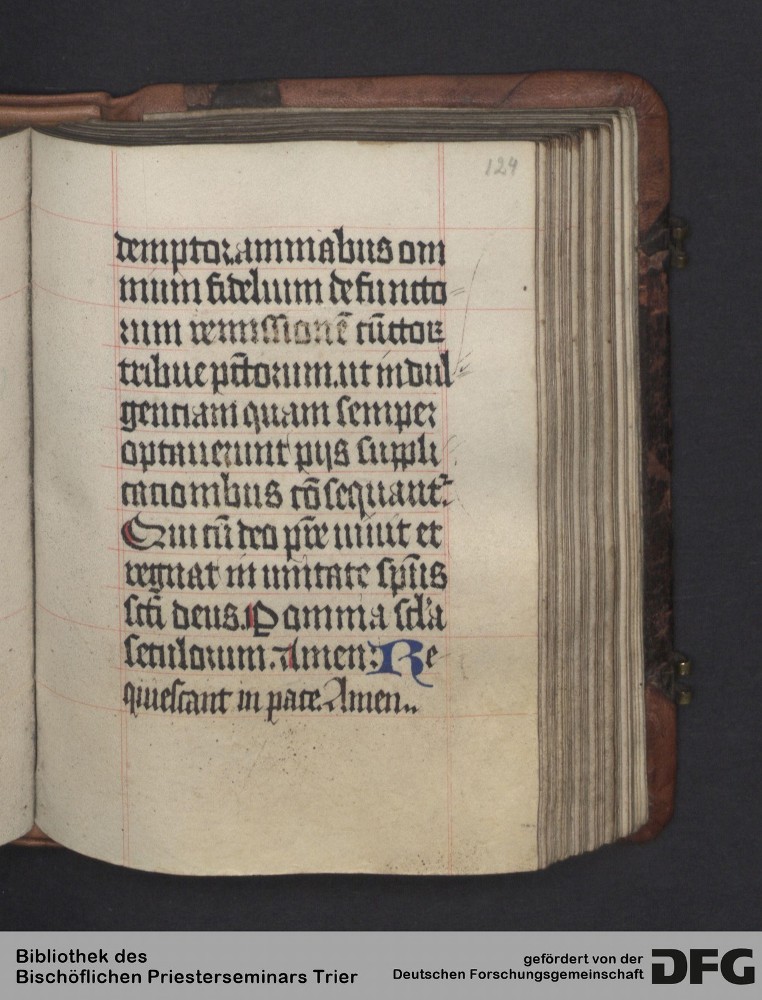 124
demptor. animabus om
nium fidelium defuncto
rum remissionē cūctoꝝ
tribue pctōrum. ut indul
genciam quam semper
optauerunt pijs suppli
cacionibus cōsequantᷣ.
Qui cū deo pr̄e uiuit et
regnat in unitate sp̄us
sctī deus. Per omnia scl̄a
seculorum. Amen: Re
quiescant in pace. Amen..
Bibliothek des
Bischöflichen Priesterseminars Trier
gefördert von der
Deutschen Forschungsgemeinschaft
DFG